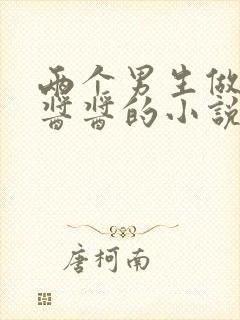 两个男生做
酱酱的小说
唐柯南